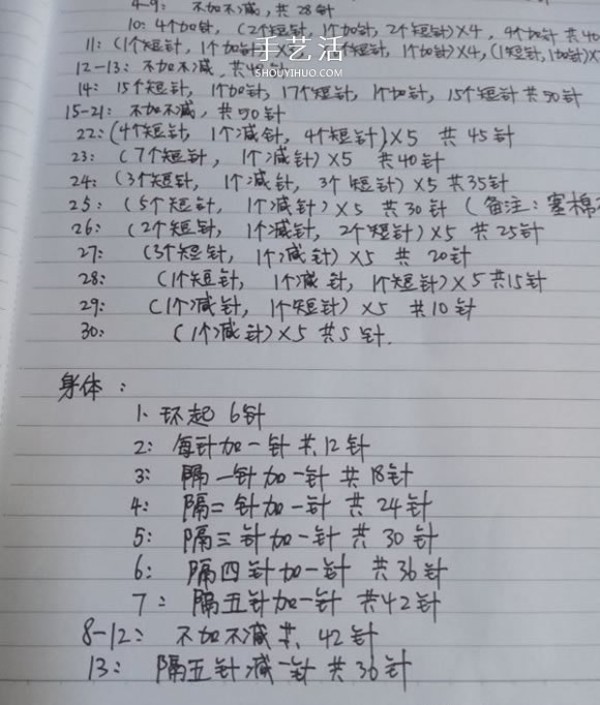 4-9: 不加不减,共28针
10: 4个加针, (2个短针, 1个加针, 2个短针)×4, 4个加针 共40
手艺活
11: (1个短针, 1个加针)×4, (1短针, 1加针)×
SHOUYIHUO.COM
12-13: 不加不减, 共48针
14: 15个短针, 1个加针, 17个短针, 1个加针, 15个短针 共50针
15-21: 不加不减, 共50针
22: (4个短针, 1个减针, 4个短针)×5 共45针
23: (7个短针, 1个减针)×5 共40针
24: (3个短针, 1个减针, 3个短针)×5 共35针
25: (5个短针, 1个减针)×5 共30针 (备注: 塞棉
26: (2个短针, 1个减针, 2个短针)×5 共25针
27: (3个短针, 1个减针)×5 共20针
28: (1个短针, 1个减针, 1个短针)×5 共15针
29: (1个减针, 1个短针)×5 共10针
30: (1个减针)×5 共5针.
身体:
1. 环起 6针
2: 每针加一针 共12针
3: 隔一针加一针 共18针
4: 隔二针加一针 共24针
5: 隔三针加一针 共30针
6: 隔四针加一针 共36针
7: 隔五针加一针 共42针
8-12: 不加不减 共, 42针
13: 隔五针减一针 共36针